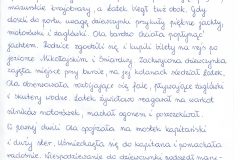 mazurskie krajobrazy, a Łatek biegł tuż obok. Gdy
doszli do portu uwagę dziewczynki przykuły piękne jachty
motorówki i żaglówki. Ola bardzo chciała popłynąć
jachtem. Rodzice zgodzili się i kupili bilety na rejs po
jeziorze Mikołajskim i Śniardwy. Zachwycona dziewczynka
zajęła miejsce przy burcie na jej kolanach siedział Łatek.
Ola obserwowała rozbijające się fale, pływające żaglówki
i skutery wodne Łatek żywiołowo reagował na warkot
silników motorówek, machał ogonem i poszczekiwał.
W pewnej chwili Ola spojrzała na mostek kapitański
i duży ster. Uśmiechnęła się do kapitana i pomachała
radośnie. Niespodziewanie do dziewczynki podszedł mary-